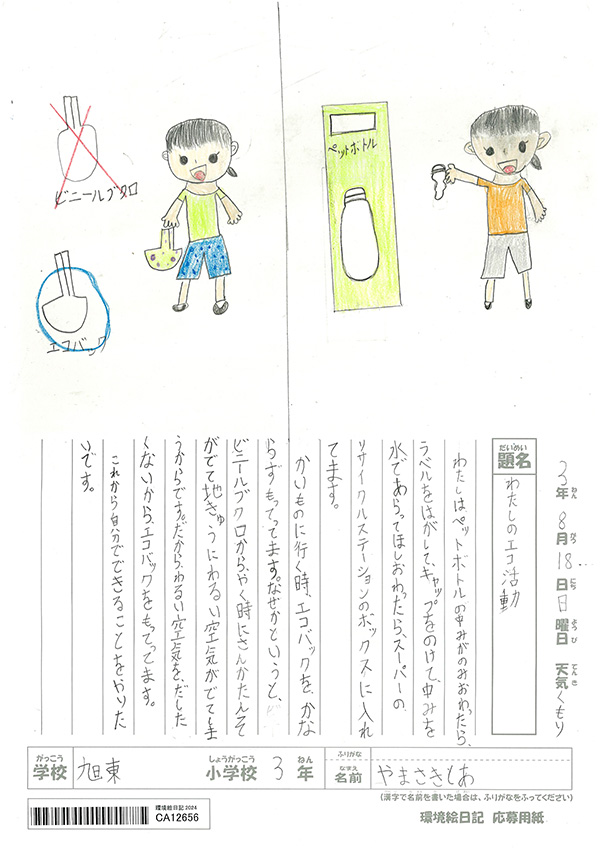 ビニールブクロ
エコバック
ペットボトル
3年 8月 18日 日曜日 天気 くもり
ねん がつ にち ようび てんき
だいめい
題名 わたしのエコ活動
わたしはペットボトルの中みがのみおわったら、
ラベルをはがして、キャップをのけて、中みを
水であらってほしおわったら、スーパーの
リサイクルステーションのボックスに入れ
てます。
かいものに行く時、エコバックを、かな
らずもってます。なぜかというと、
ビニールブクロから、やく時にさんかたんそ
がでて地きゅうにわるい空気がでてしま
うからです。だから、わるい空気を、だした
くないから、エコバックをもってます。
これから自分でできることをやりた
いです。
がっこう しょうがっこう ねん ふりがな
学校 旭東 小学校 3年
なまえ
名前 やまさき
(漢字で名前を書いた場合は、ふりがなをふってください)
環境絵日記2024
CA12656
環境絵日記 応募用紙